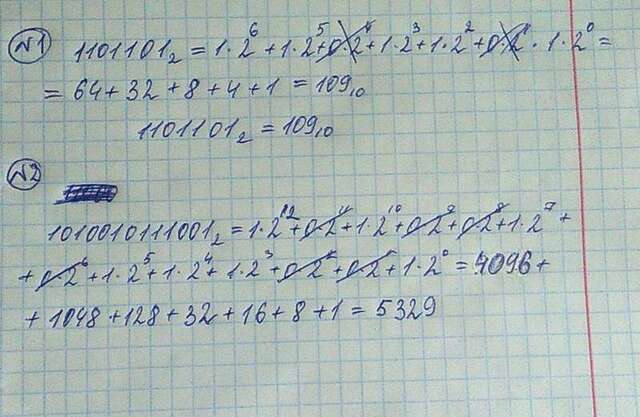 №1 1101101₂ = 1·2⁶ + 1·2⁵ + 0·2⁴ + 1·2³ + 1·2² + 0·2¹ · 1·2⁰ =
= 64 + 32 + 8 + 4 + 1 = 109₁₀
1101101₂ = 109₁₀
№2
1010010111001₂ = 1·2¹² + 0·2¹¹ + 1·2¹⁰ + 0·2⁹ + 0·2⁸ + 1·2⁷ +
+ 0·2⁶ + 1·2⁵ + 1·2⁴ + 1·2³ + 0·2² + 0·2¹ + 1·2⁰ = 4096 +
+ 1048 + 128 + 32 + 16 + 8 + 1 = 5329